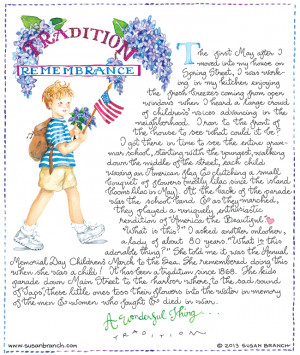 TRADITION
REMEMBRANCE
The first May after I
moved into my house on
Spring Street, I was work-
ing in my kitchen enjoying
the fresh breezes coming from open
windows when I heard a large crowd
of children's voices advancing in the
neighborhood. I ran to the front of
the house to see what could it be?
I got there in time to see the entire gram-
mar school, starting with the youngest, walking
down the middle of the street, each child
waving an American flag & clutching a small
bouquet of flowers (mostly lilac since the island
blooms lilac in May). At the back of the parade
was the school band & as they marched,
they played a uniquely enthusiastic
rendition of America the Beautiful.
"What is this?" I asked another onlooker,
a lady of about 80 years. "What is this
adorable thing?" She told me it was the Annual
Memorial Day Children's March to the Sea. She remembered doing this
when she was a child! It has been a tradition since 1868. The kids
parade down Main Street to the harbor where, to the sad sound
of Taps, these little ones toss their flowers into the water in memory
of the men & women who fought & died in war.
A Wonderful Thing...
TRADITION
www.susanbranch.com
© 2013 SUSAN BRANCH